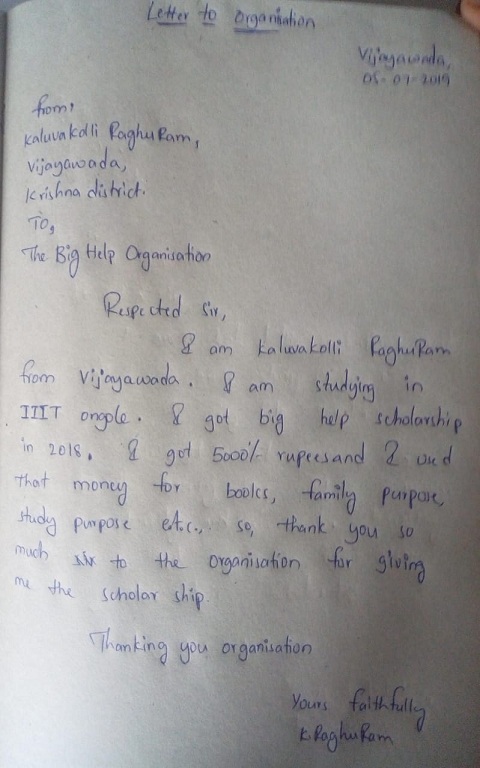 Letter to Organisation
Vijayawada,
05-07-2019
from,
Kaluvakolli RaghuRam,
Vijayawada,
Krishna district.
To,
The Big Help Organisation
Respected Sir,
I am kaluvakolli RaghuRam
from Vijayawada. I am studying in
IIIT ongole. I got big help scholarship
in 2018. I got 5000/- rupees and I used
that money for books, family purpose,
study purpose e.t.c., so, thank you so
much to the organisation for giving
me the scholar ship.
Thanking you organisation
Yours faithfully
K.RaghuRam